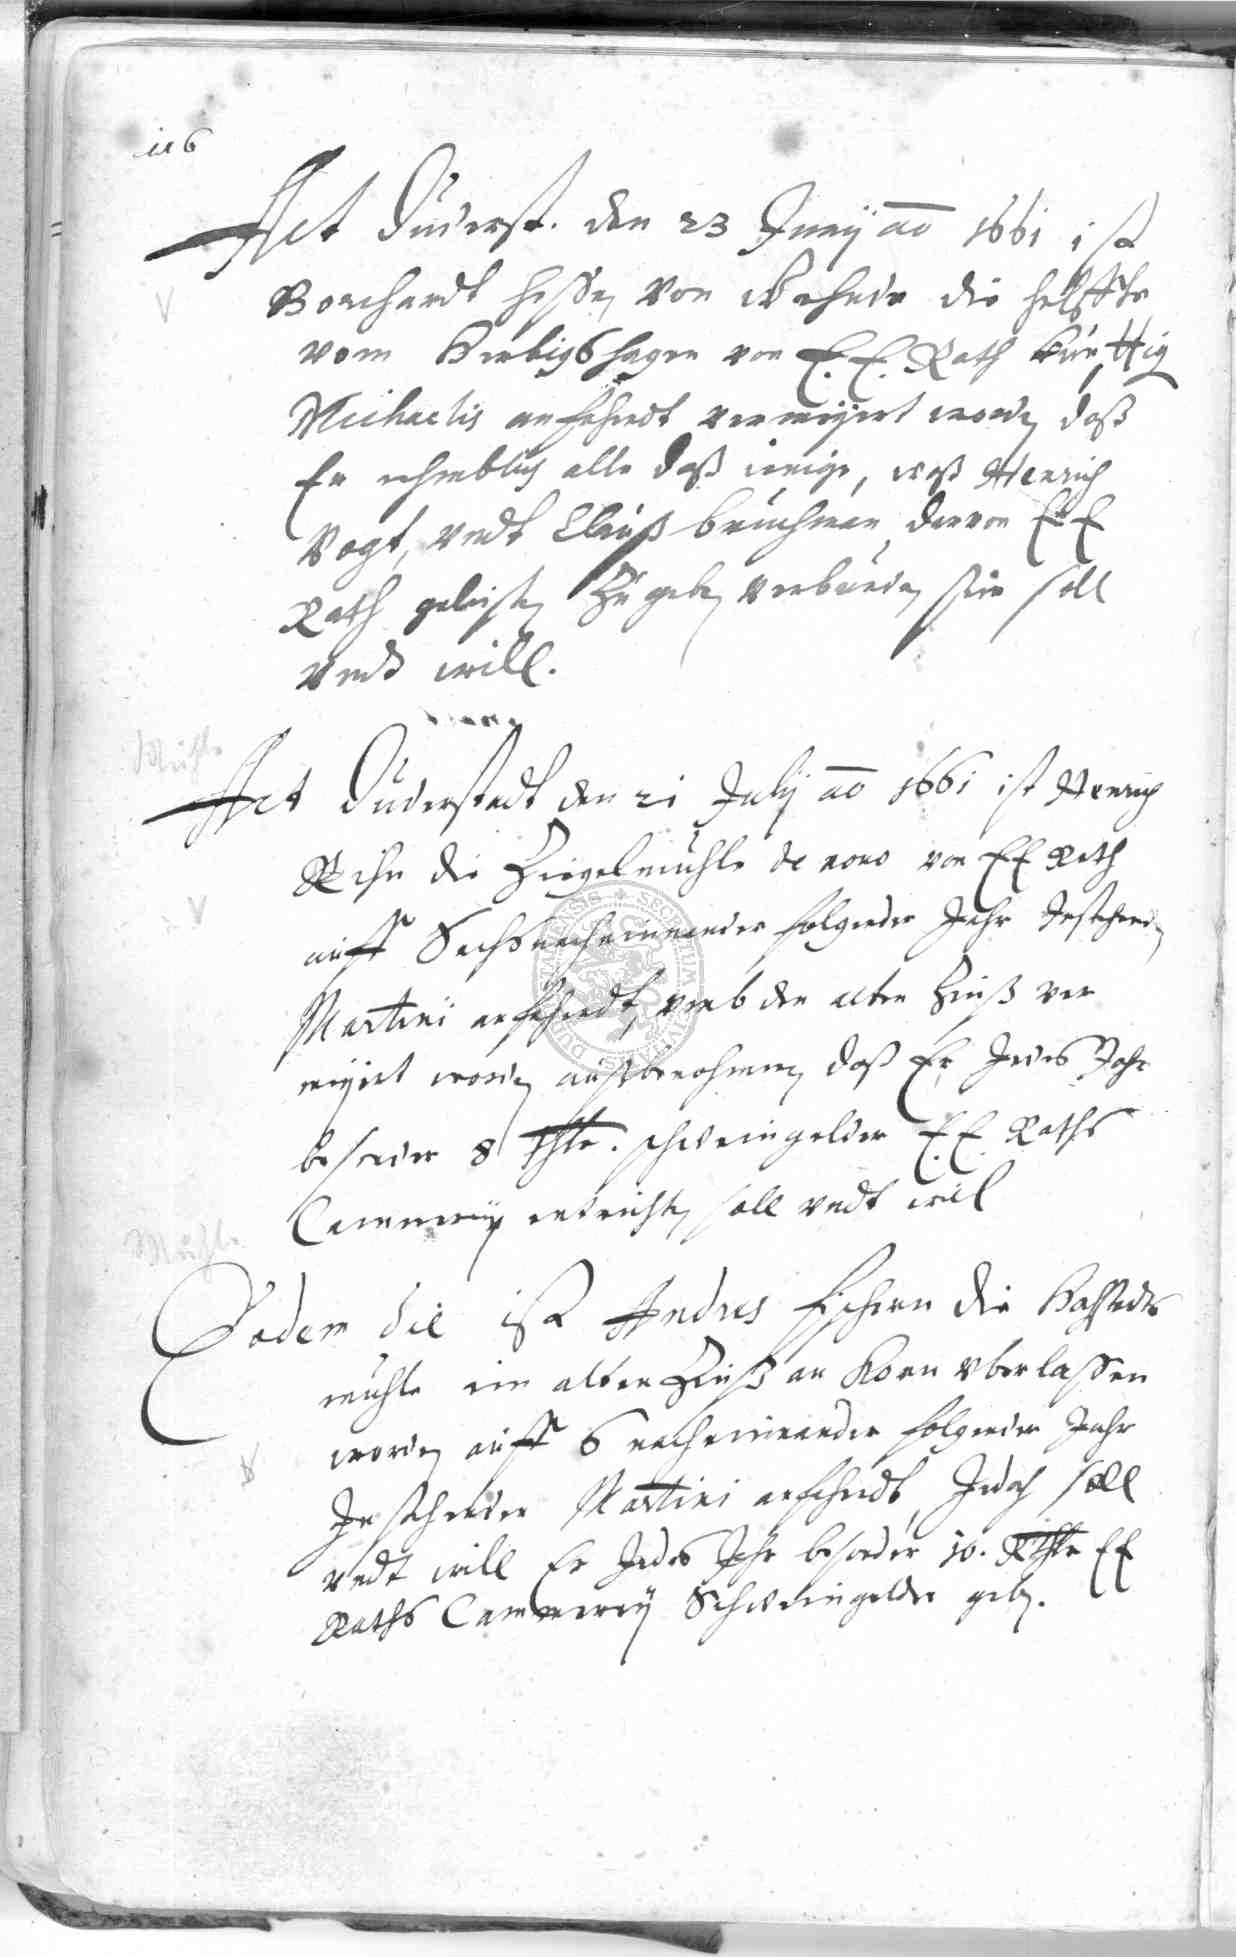 116
Act Duderst. den 23 Junij ao 1661 ist
Borchardt Hesse, von Wehnde die helffte
vom Herbigshagen von E. E. Rath künfftig
Michaelis anfahendt vermeyert worden daß
Er alle daß ienige, waß Henrich
Vogt, vndt Clauß bruchman, darvon E E
Rath geleistet zu geben verbunden sein soll
vndt will.
Mühle
Act Duderstadt den 21 Julij ao 1661 ist Henrich
die Ziegelmühle de novo von EE Rath
auff Sechs nacheinander folgender Jahr
Martini anfahendt, vmb den alten Zinß ver
meyert worden außbenohmen daß Er Jedes Jahr
besonder 8 Thlr. schweingelder E. E. Raths
Cammerey entrichten soll vndt wil
Mühle
Eodem die ist Andres fischern die
mühle im alten Zinß an Korn vberlassen
worden auff 6 nacheinander folgender Jahr
Martini anfahendt, Jedoch soll
vndt will Er Jedes Jahr besonder 10. Rthlr EE
Raths Cammerey Schweingelder geben.
SECRETUM CIVITATIS DUDERSTADENSIS